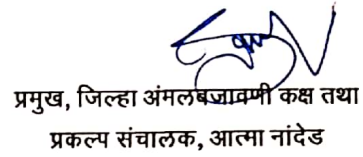 प्रमुख, जिल्हा अंमलबजावणी कक्ष तथा
प्रकल्प संचालक, आत्मा नांदेड